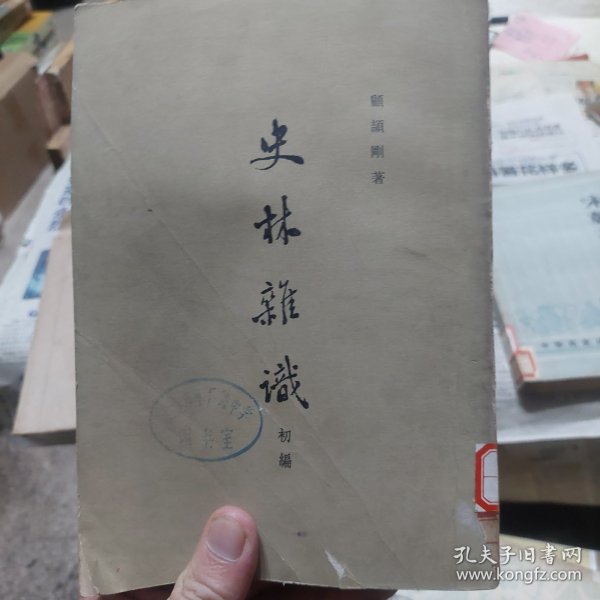 顧頡剛著
史林雜識
初編
图书室
孔夫子旧书网
www.kongfz.com